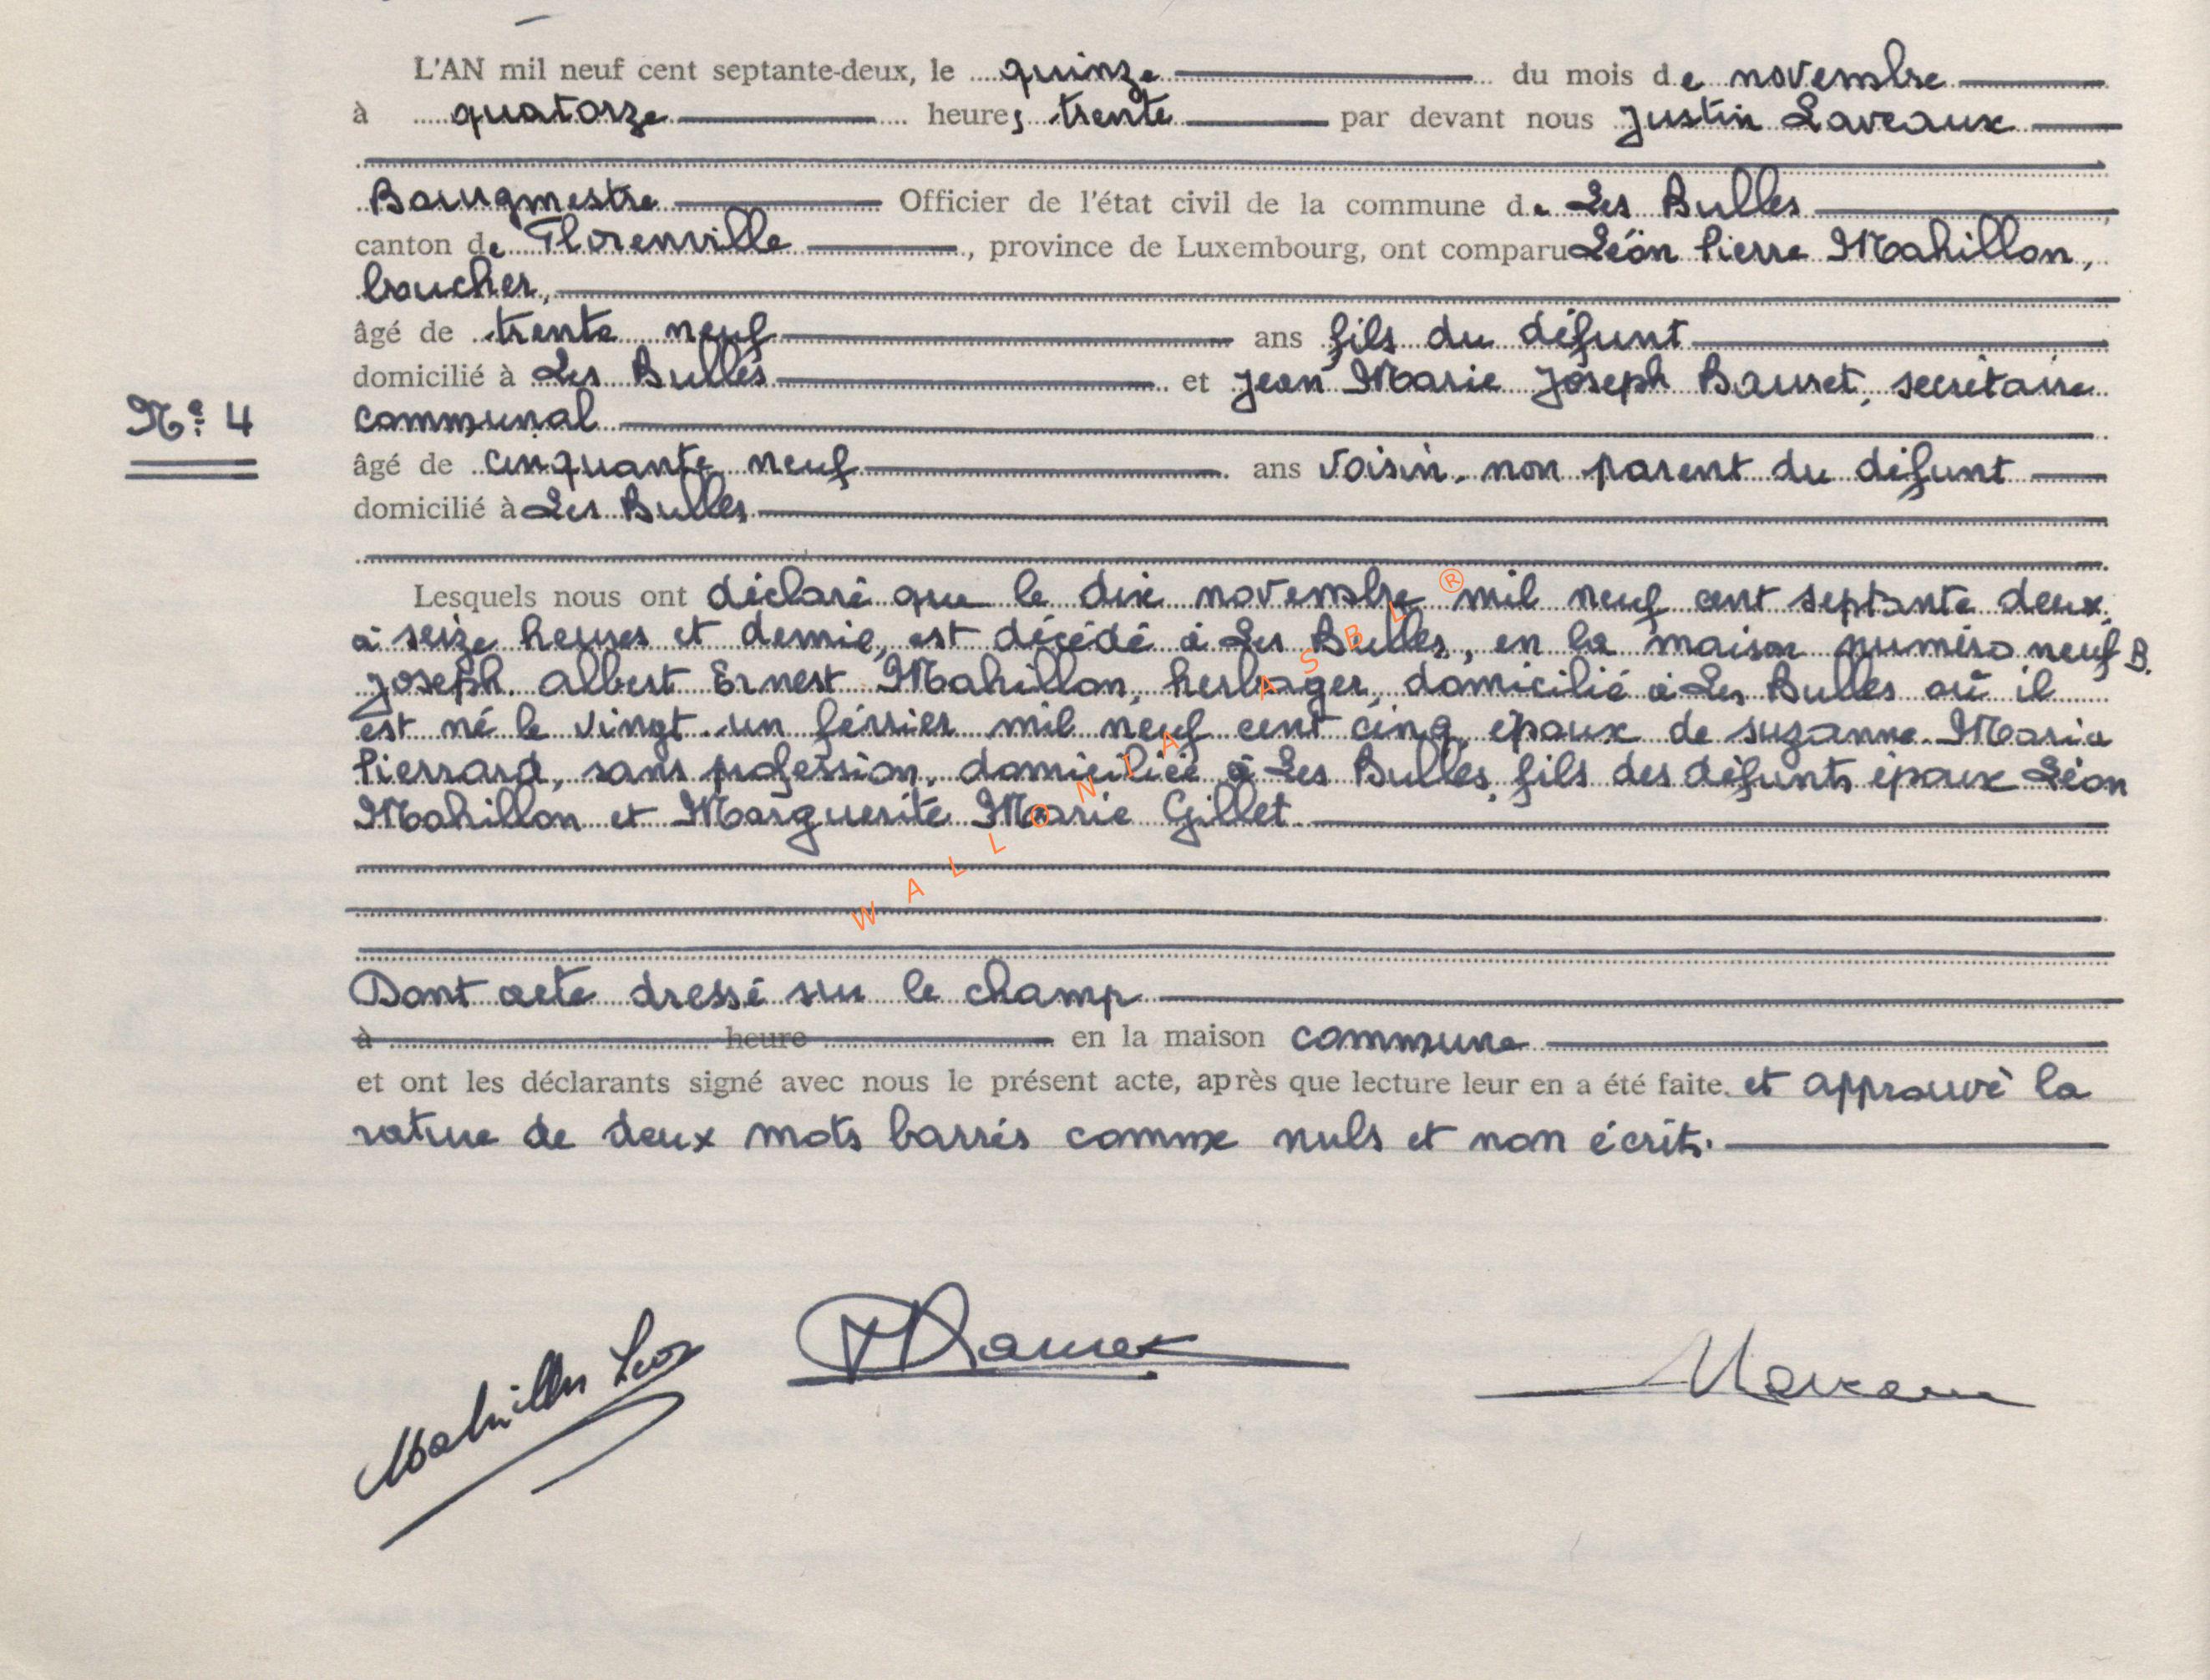 L'AN mil neuf cent septante-deux, le quinze du mois de novembre
à quatorze heures trente par devant nous Justin Laveaux
Bourgmestre Officier de l'état civil de la commune de Les Bulles
canton de Florenville, province de Luxembourg, ont comparu Léon Pierre Mahillon,
boucher,
âgé de trente neuf ans fils du défunt
domicilié à Les Bulles et Jean Marie Joseph Bauret, secrétaire
N° 4 communal
âgé de cinquante neuf ans voisin, non parent du défunt
domicilié à Les Bulles
Lesquels nous ont déclaré que le dix novembre mil neuf cent septante deux,
à seize heures et demie, est décédé à Les Bulles, en la maison numéro neuf B.
Joseph Albert Ernest Mahillon, herbager, domicilié à Les Bulles où il
est né le vingt-un février mil neuf cent cinq, époux de Suzanne Maria
Pierrard, sans profession, domiciliée à Les Bulles, fils des défunts époux Léon
Mahillon et Marguerite Marie Gillet
WALLONIA ASBL ®
Dont acte dressé sur le champ
à heure en la maison commune
et ont les déclarants signé avec nous le présent acte, après que lecture leur en a été faite. et approuvé la
rature de deux mots barrés comme nuls et non écrits.
Mahillon Léon